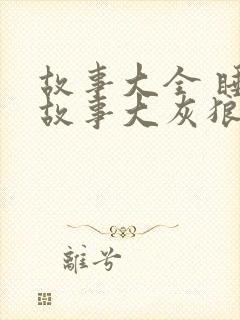 故事大全 睡
故事大灰狼
離兮